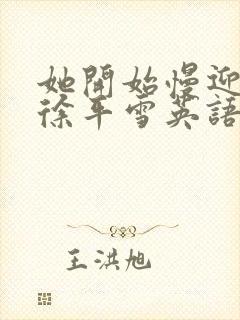 她開始慢迎
徐平雪英語
王洪旭